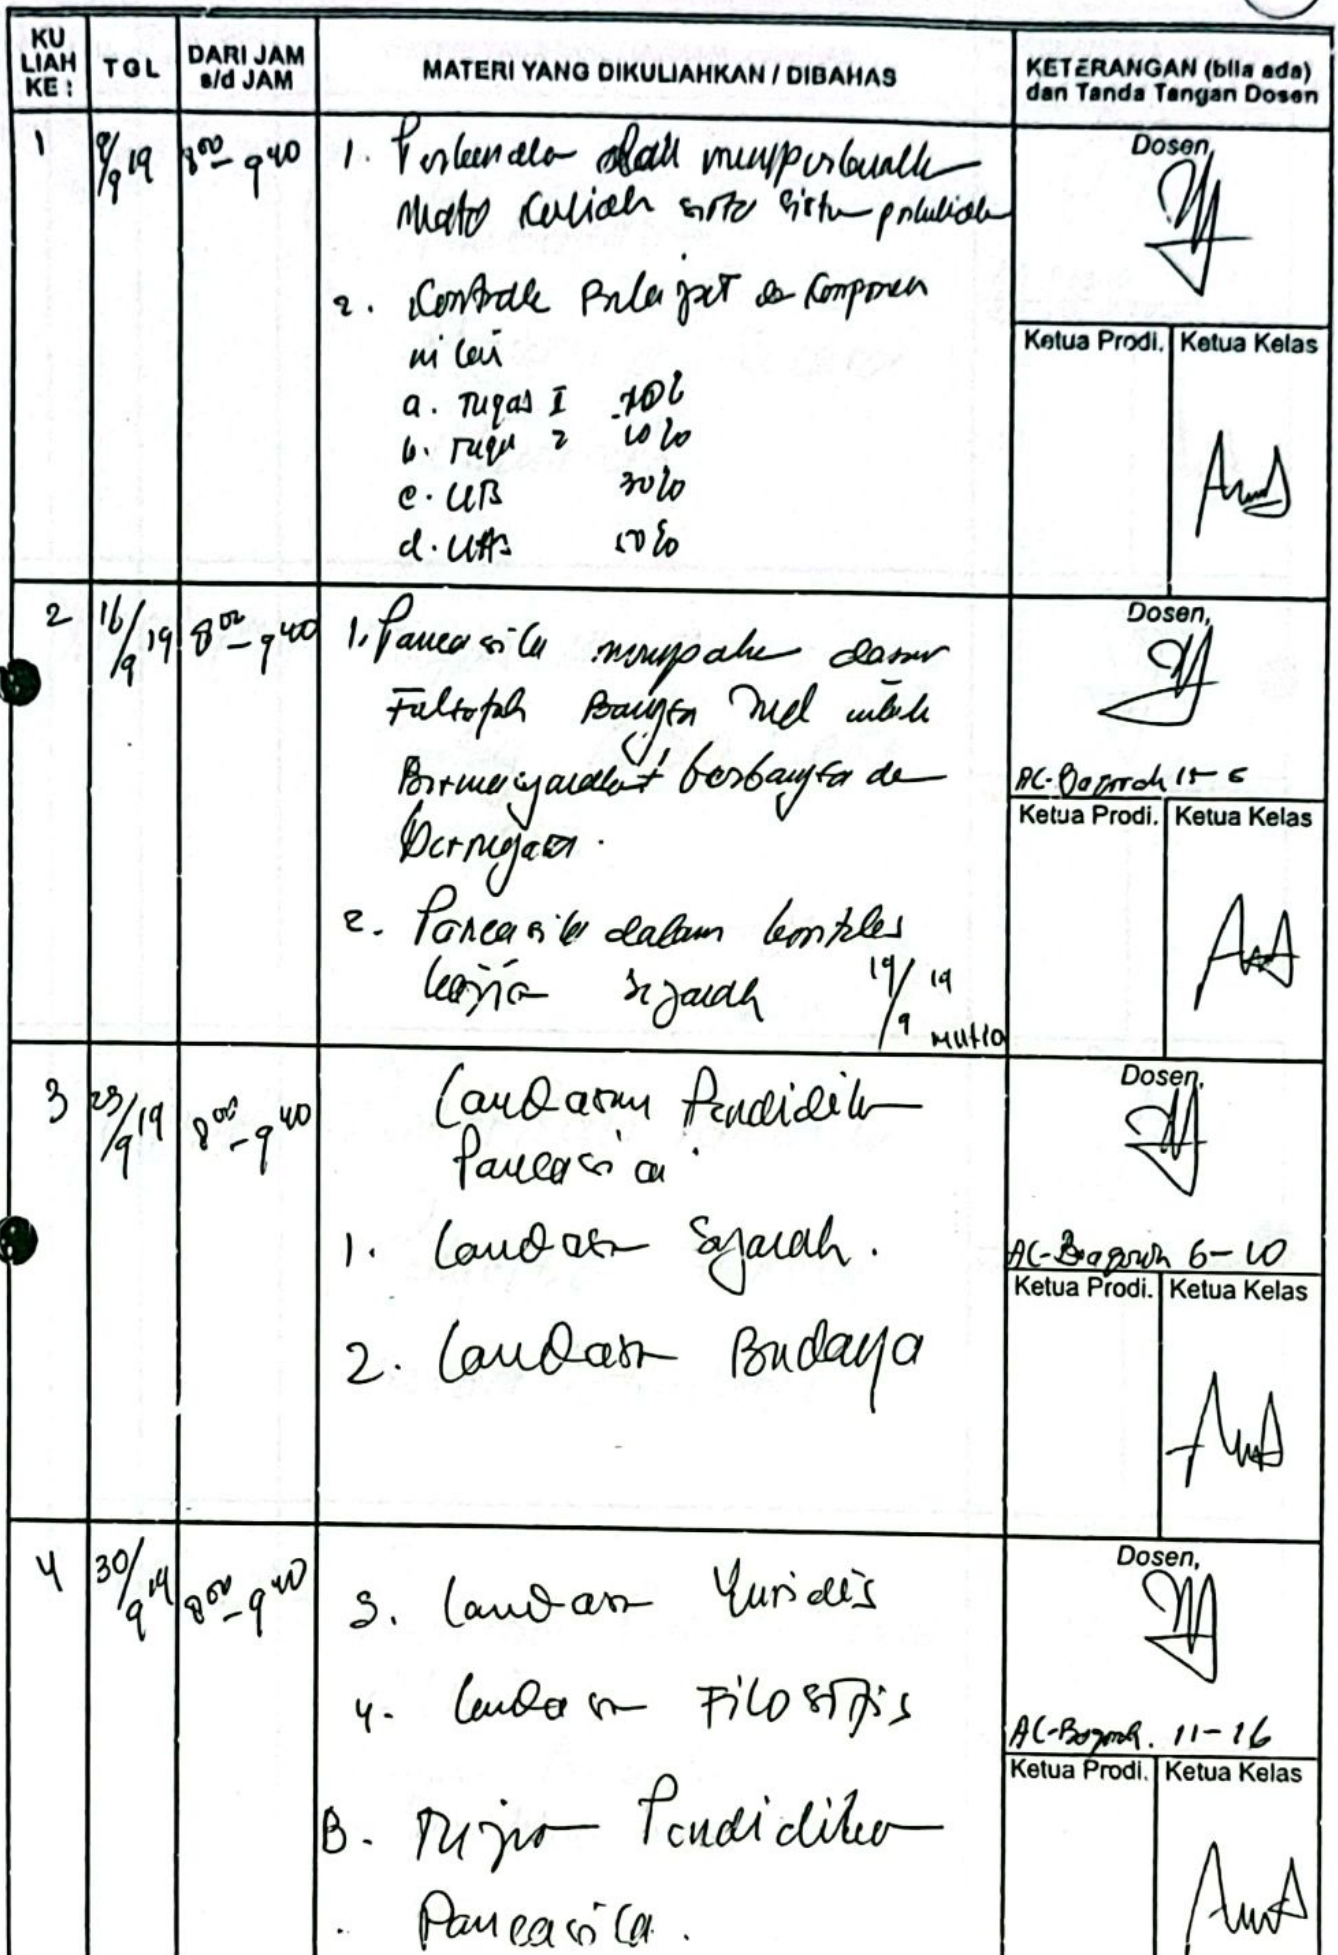 KU
LIAH
KE :
TGL
DARI JAM
s/d JAM
MATERI YANG DIKULIAHKAN / DIBAHAS
KETERANGAN (bila ada)
dan Tanda Tangan Dosen
1
9/9 19
8⁰⁰ - 9⁴⁰
1.
Mata Kuliah serta
2. Kontrak
nilai
a. Tugas I 10%
b. Tugas 2 10%
c. UTS 30%
d. UAS 50%
Dosen,
Ketua Prodi.
Ketua Kelas
2
16/9 19
8⁰⁰ - 9⁴⁰
1. Pancasila merupakan dasar
Bangsa untuk
berbangsa dan
Bernegara.
2. Pancasila dalam konteks
kajian sejarah
19/9 19
Mutia
Dosen,
15-5
Ketua Prodi.
Ketua Kelas
3
23/9 19
8⁰⁰ - 9⁴⁰
Landasan Pendidikan
Pancasila
1. Landasan Sejarah.
2. Landasan Budaya
Dosen,
6-10
Ketua Prodi.
Ketua Kelas
4
30/9 19
8⁰⁰ - 9⁴⁰
3. Landasan Yuridis
4. Landasan Filosofis
B. Tujuan Pendidikan
Pancasila.
Dosen,
11-16
Ketua Prodi.
Ketua Kelas